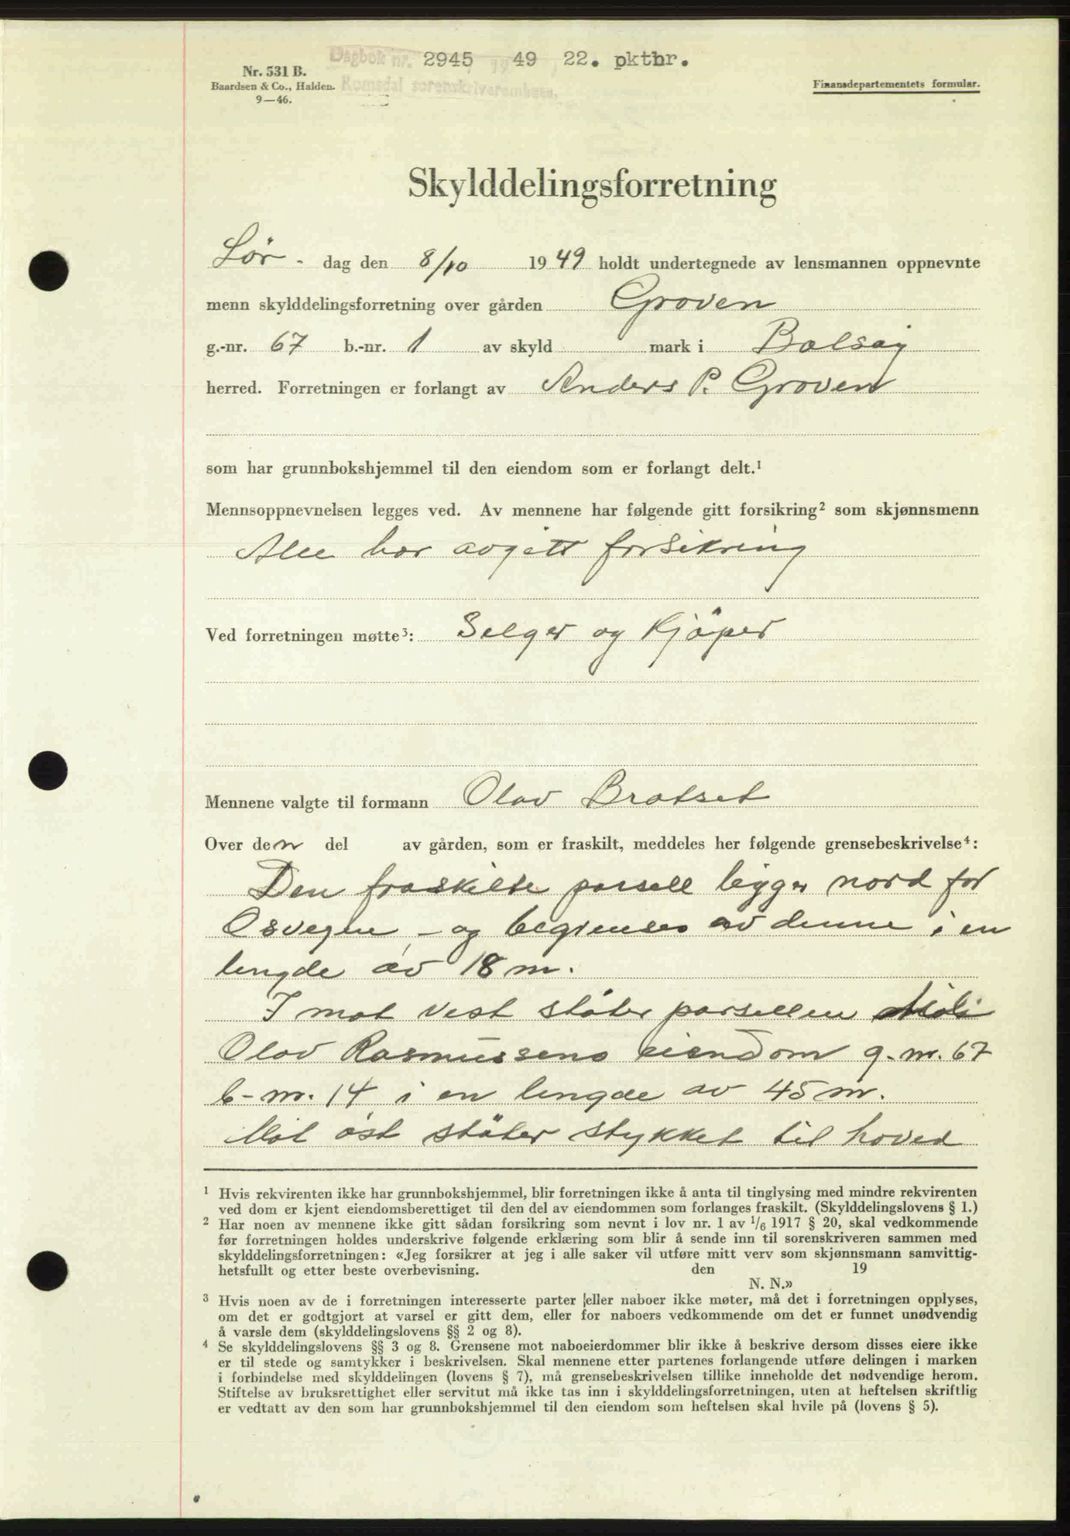 Dagbok nr. 2945 49 22. pktbr.
Romsdal sorenskriverembete.
Nr. 531 B.
Baardsen & Co., Halden.
9—46.
Finansdepartementets formular.
Skylddelingsforretning
Lør- dag den 8/10 1949 holdt undertegnede av lensmannen oppnevnte
menn skylddelingsforretning over gården Groven
g.-nr. 67 b.-nr. 1 av skyld mark i Bolsøy
herred. Forretningen er forlangt av Anders P. Groven
som har grunnbokshjemmel til den eiendom som er forlangt delt.1
Mennsoppnevnelsen legges ved. Av mennene har følgende gitt forsikring2 som skjønnsmenn
Alle har avgitt forsikring
Ved forretningen møtte3: Selger og Kjøper
Mennene valgte til formann Olav Bratset
Over den del av gården, som er fraskilt, meddeles her følgende grensebeskrivelse4:
Den fraskilte parsell ligger nord for
Osvegen, - og begrenses av denne i en
lengde av 18 m.
I mot vest støter parsellen
Olav Rasmussens eiendom g.-nr. 67
b-nr. 14 i en lengde av 45 m.
Mot øst støter stykket til hoved
1 Hvis rekvirenten ikke har grunnbokshjemmel, blir forretningen ikke å anta til tinglysing med mindre rekvirenten
ved dom er kjent eiendomsberettiget til den del av eiendommen som forlanges fraskilt. (Skylddelingslovens § 1.)
2 Har noen av mennene ikke gitt sådan forsikring som nevnt i lov nr. 1 av 1/6 1917 § 20, skal vedkommende
før forretningen holdes underskrive følgende erklæring som blir å sende inn til sorenskriveren sammen med
skylddelingsforretningen: «Jeg forsikrer at jeg i alle saker vil utføre mitt verv som skjønnsmann samvittig-
hetsfullt og etter beste overbevisning. den 19
N. N.»
3 Hvis noen av de i forretningen interesserte parter eller naboer ikke møter, må det i forretningen opplyses,
om det er godtgjort at varsel er gitt dem, eller for naboers vedkommende om det er funnet unødvendig
å varsle dem (skylddelingslovens §§ 2 og 8).
4 Se skylddelingslovens §§ 3 og 8. Grensene mot naboeierdommer blir ikke å beskrive dersom disses eiere ikke
er til stede og samtykker i beskrivelsen. Skal mennene etter partenes forlangende utføre delingen i marken
i forbindelse med skylddelingen (lovens § 7), må grensebeskrivelsen tillike inneholde det nødvendige herom.
Stiftelse av bruksrettighet eller servitut må ikke tas inn i skylddelingsforretningen, uten at heftelsen skriftlig
er vedtatt av den som har grunnbokshjemmel til den eiendom som heftelsen skal hvile på (lovens § 5).